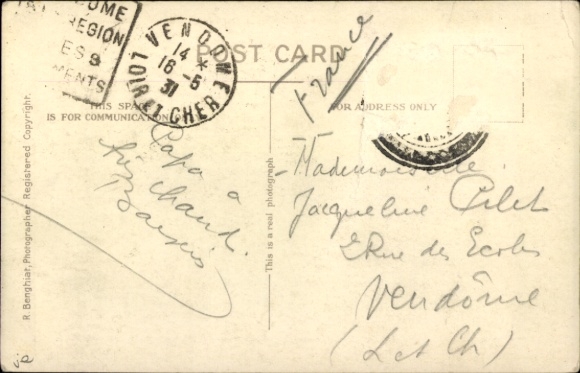 OME
REGION
ES &
MENTS
VENDOME
14 *
16 - 5
31
LOIR ET CHER
POST CARD
THIS SPACE
IS FOR COMMUNICATION
FOR ADDRESS ONLY
France
Papa a
chaud.
Baisers
R. Benghiat, Photographer Registered Copyright.
This is a real photograph
Mademoiselle
Jacqueline Pilet
2 Rue des Ecoles
Vendôme
(L et Ch)